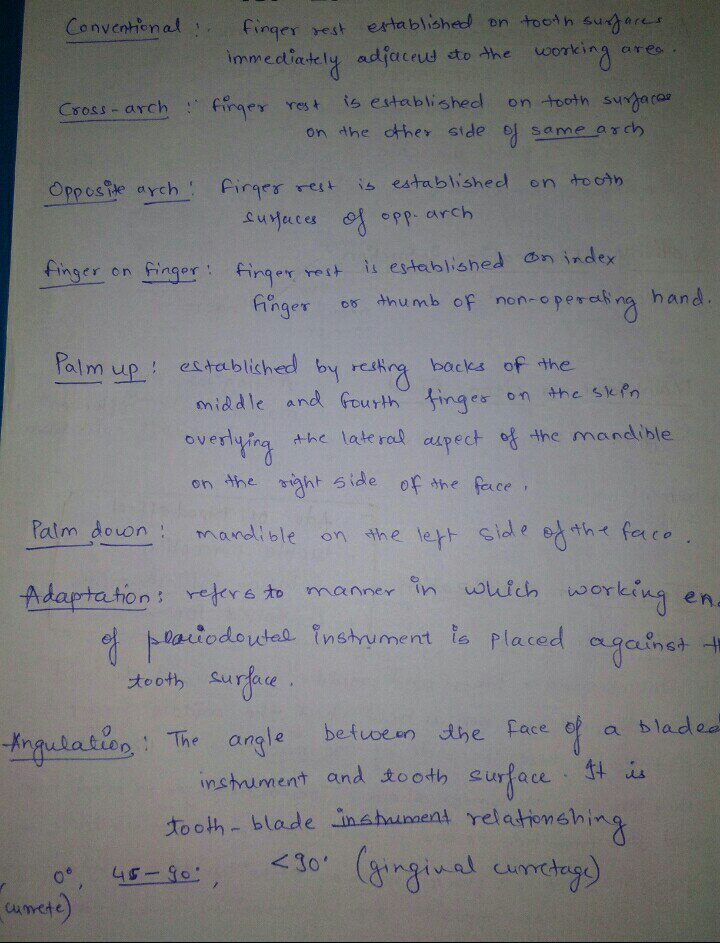 Conventional : finger rest established on tooth surfaces
immediately adjacent to the working area.
Cross-arch : finger rest is established on tooth surfaces
on the other side of same arch
Opposite arch : Finger rest is established on tooth
surfaces of opp. arch
finger on finger : finger rest is established on index
finger or thumb of non-operating hand.
Palm up : established by resting backs of the
middle and fourth finger on the skin
overlying the lateral aspect of the mandible
on the right side of the face.
Palm down : mandible on the left side of the face.
Adaptation : refers to manner in which working en
of periodontal instrument is placed against th
tooth surface.
Angulation : The angle between the face of a bladed
instrument and tooth surface. It is
tooth-blade instrument relationshing
0°, 45-90°, <90° (gingival curretage)
(currete)